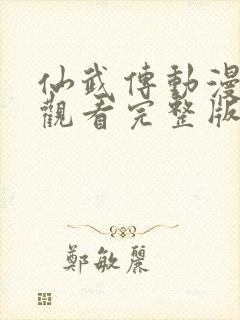 仙武傳動漫
觀看完整版
鄭敏麗